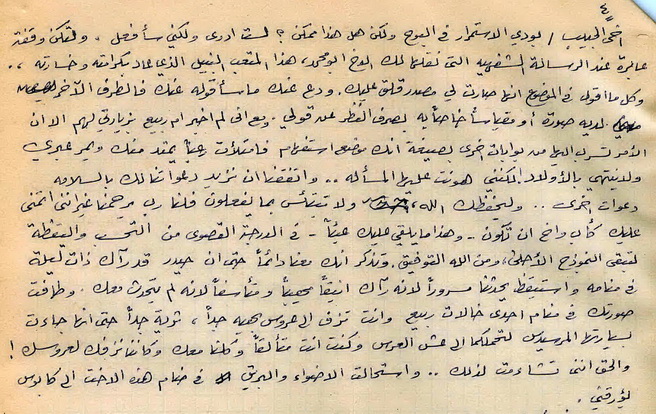 ٤
أخي الحبيب / بودي الاستمرار في البوح ولكن هل هذا ممكن ؟ لست ادري ولكني سأفعل ، ولتكن وقفة
عابرة عند الرسالة الشفهية التي نقلها لك الاخ ابو محمد، هذا المتعب النبيل الذي عاد بكرامته وخسارته ..
وكل ما أقوله في الموضوع انها صارت لي مصدر قلق عليك . ودع عنك ما سأقوله عنك فالطرف الآخر
لديه صورة أو مقياساً خاصاً به بصرف النظر عن قولي . ومع اني لم اخبر ام ربيع بزيارتي لهم الا ان
الأمر تسرب اليها من بوابات اخرى بصيغة انك موضع استفهام فامتلأت رعباً يمتد منك ويمر عبري
ولا ينتهي بالأولاد لكنني هونت عليها المسألة .. واتفقنا ان نزيد دعواتنا لك بالسلامة
دعوات اخرى .. وليحفظك الله ، ولا تبتئس بما يفعلون فلنا رب يرحمنا غير انني اتمنى
عليك كأب وأخ ان تكون - وهذا ما يلقي عليك عبئاً - في الدرجة القصوى من التحسب واليقظة
لتبقى النموذج الأحلى ، ومن الله التوفيق . وتذكر انك معنا دائماً حتى ان حيدر قد رآك ذات ليلة
في منامه واستيقظ يحدثنا مسروراً لأنه رآك انيقاً بهيجاً ومتأسفاً لأنه لم يتحدث معك . وطافت
صورتك في منام احدى خالات ربيع وانت تزف الى عروس بهية جداً ، ثرية جداً حتى انها جاءت
بسيارتها المرسيدس لتحملكما الى عش العرس وكنت انت متألقاً وكلنا معك وكأننا نزفك لعروسك !
والحق انني تشاءمت لذلك .. واستحالت الاضواء والبريق في منام هذه الاخت الى كابوس
يؤرقني .